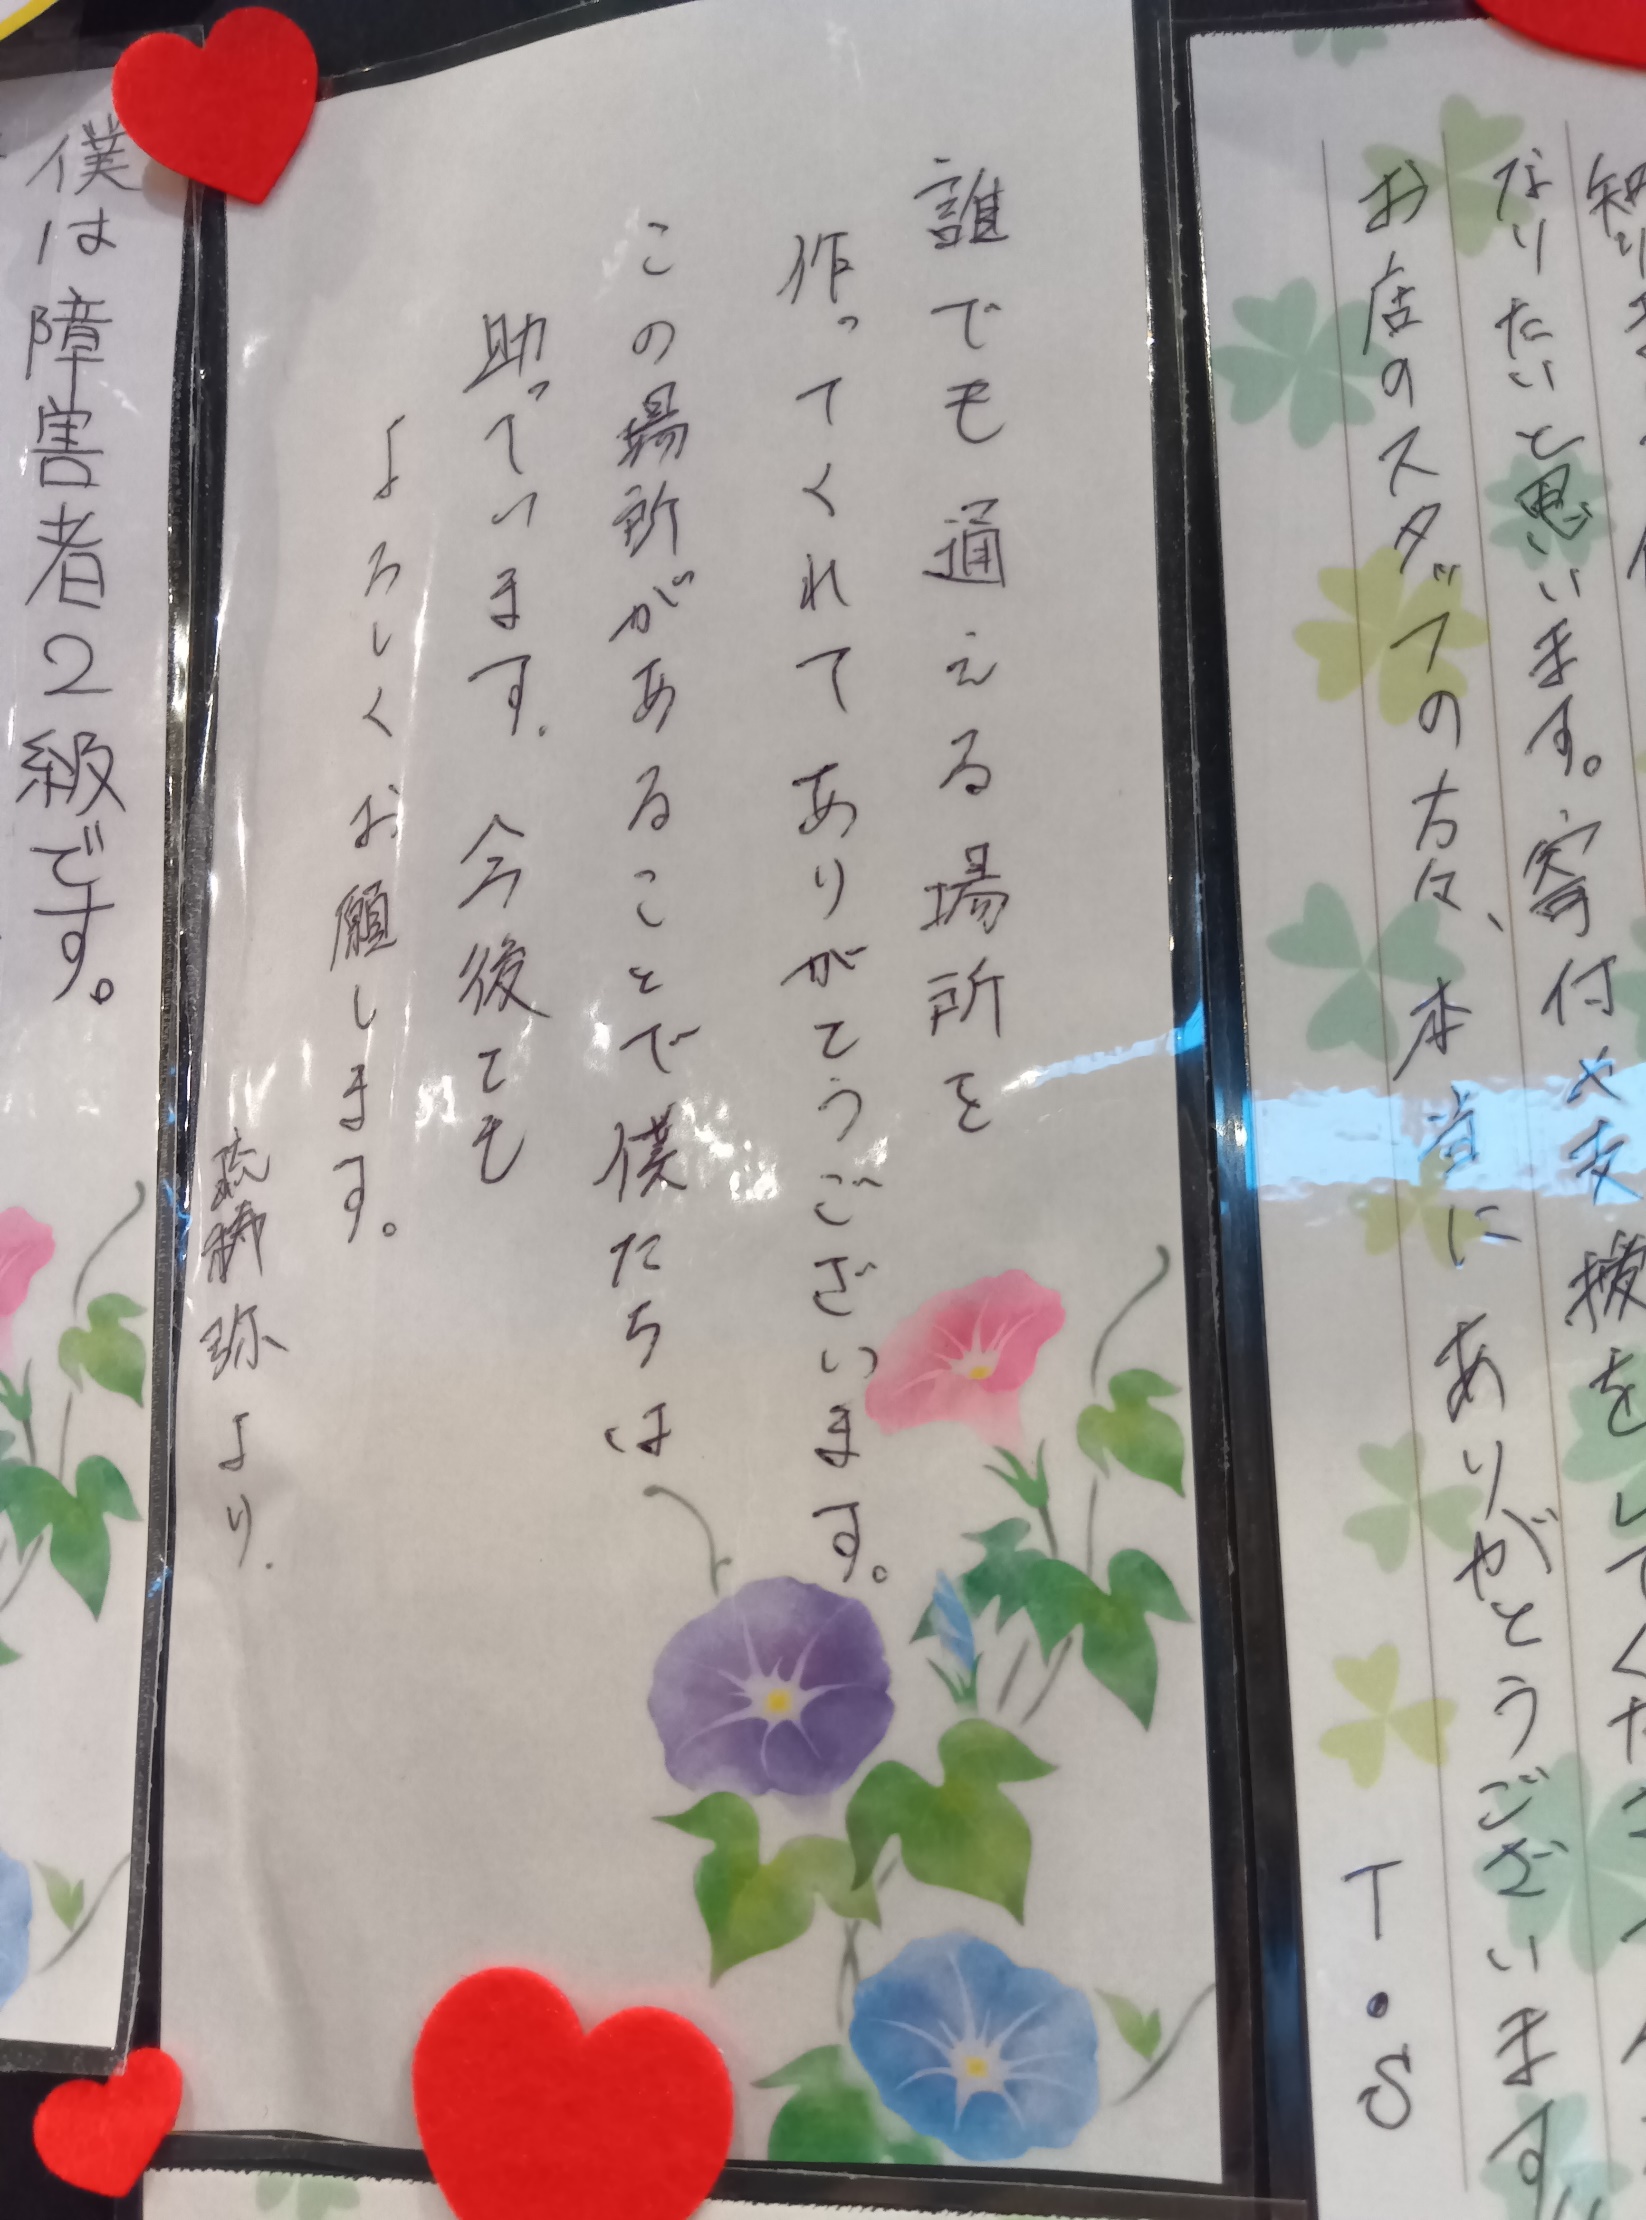 なりたいと思います。寄付や支援をしてくださ
お店のスタッフの方々、本当にありがとうございます
T・S
誰でも通える場所を
作ってくれてありがとうございます。
この場所があることで僕たちは
助っています. 今後とも
よろしくお願します。
弥より.
僕は障害者2級です。